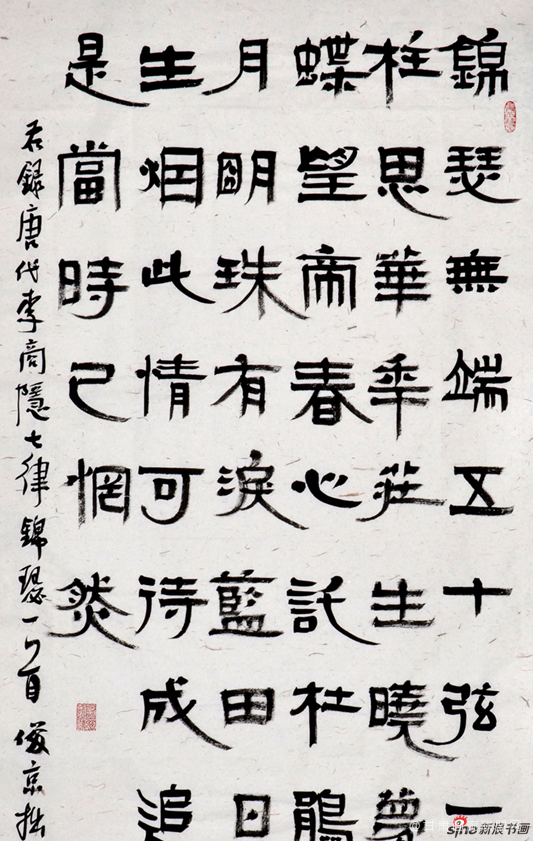 錦瑟無端五十弦一
柱思華年莊生曉夢
蝶望帝春心託杜鵑
月明珠有淚藍田日
生烟此情可待成追
是當時已惘然
右録唐代李商隱七律錦瑟一首 京拙
sina新浪书画